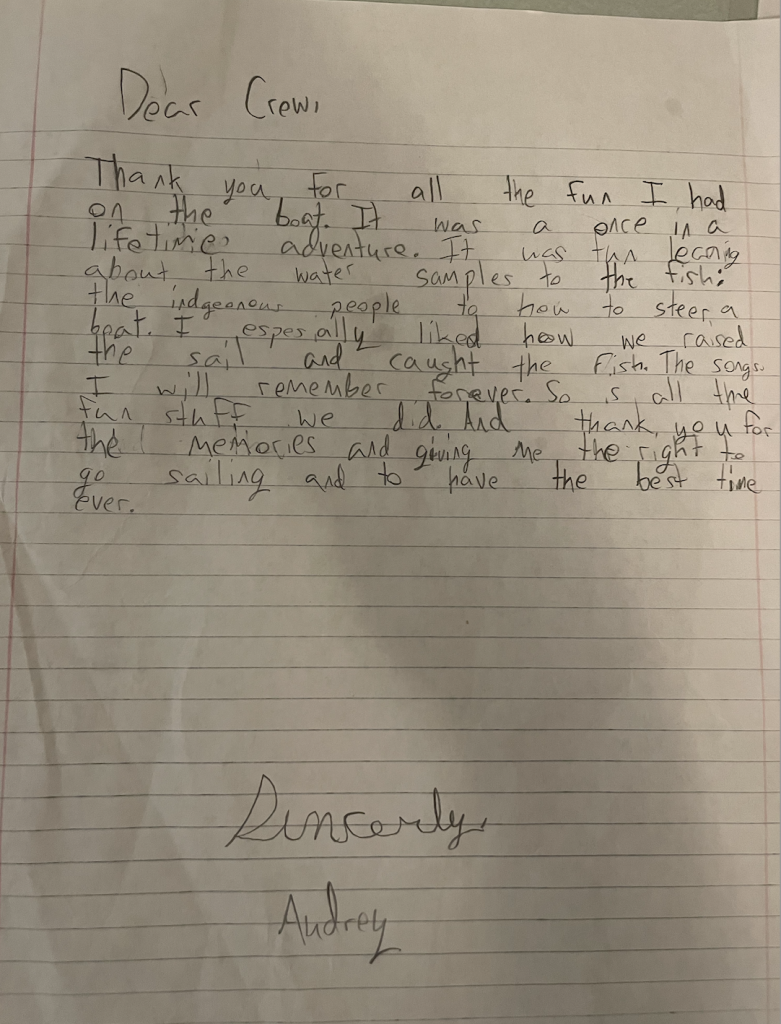 Dear Crew,
Thank you for all the fun I had
on the boat. It was a once in a
lifetime adventure. It was fun learnig
about the water samples to the fish:
the indgeenous people to how to steer a
boat. I espesially liked how we raised
the sail and caught the fish. The songs
I will remember forever. So is all the
fun stuff we did. And thank you for
the memories and giving me the right to
go sailing and to have the best time
ever.
Sincerly,
Audrey